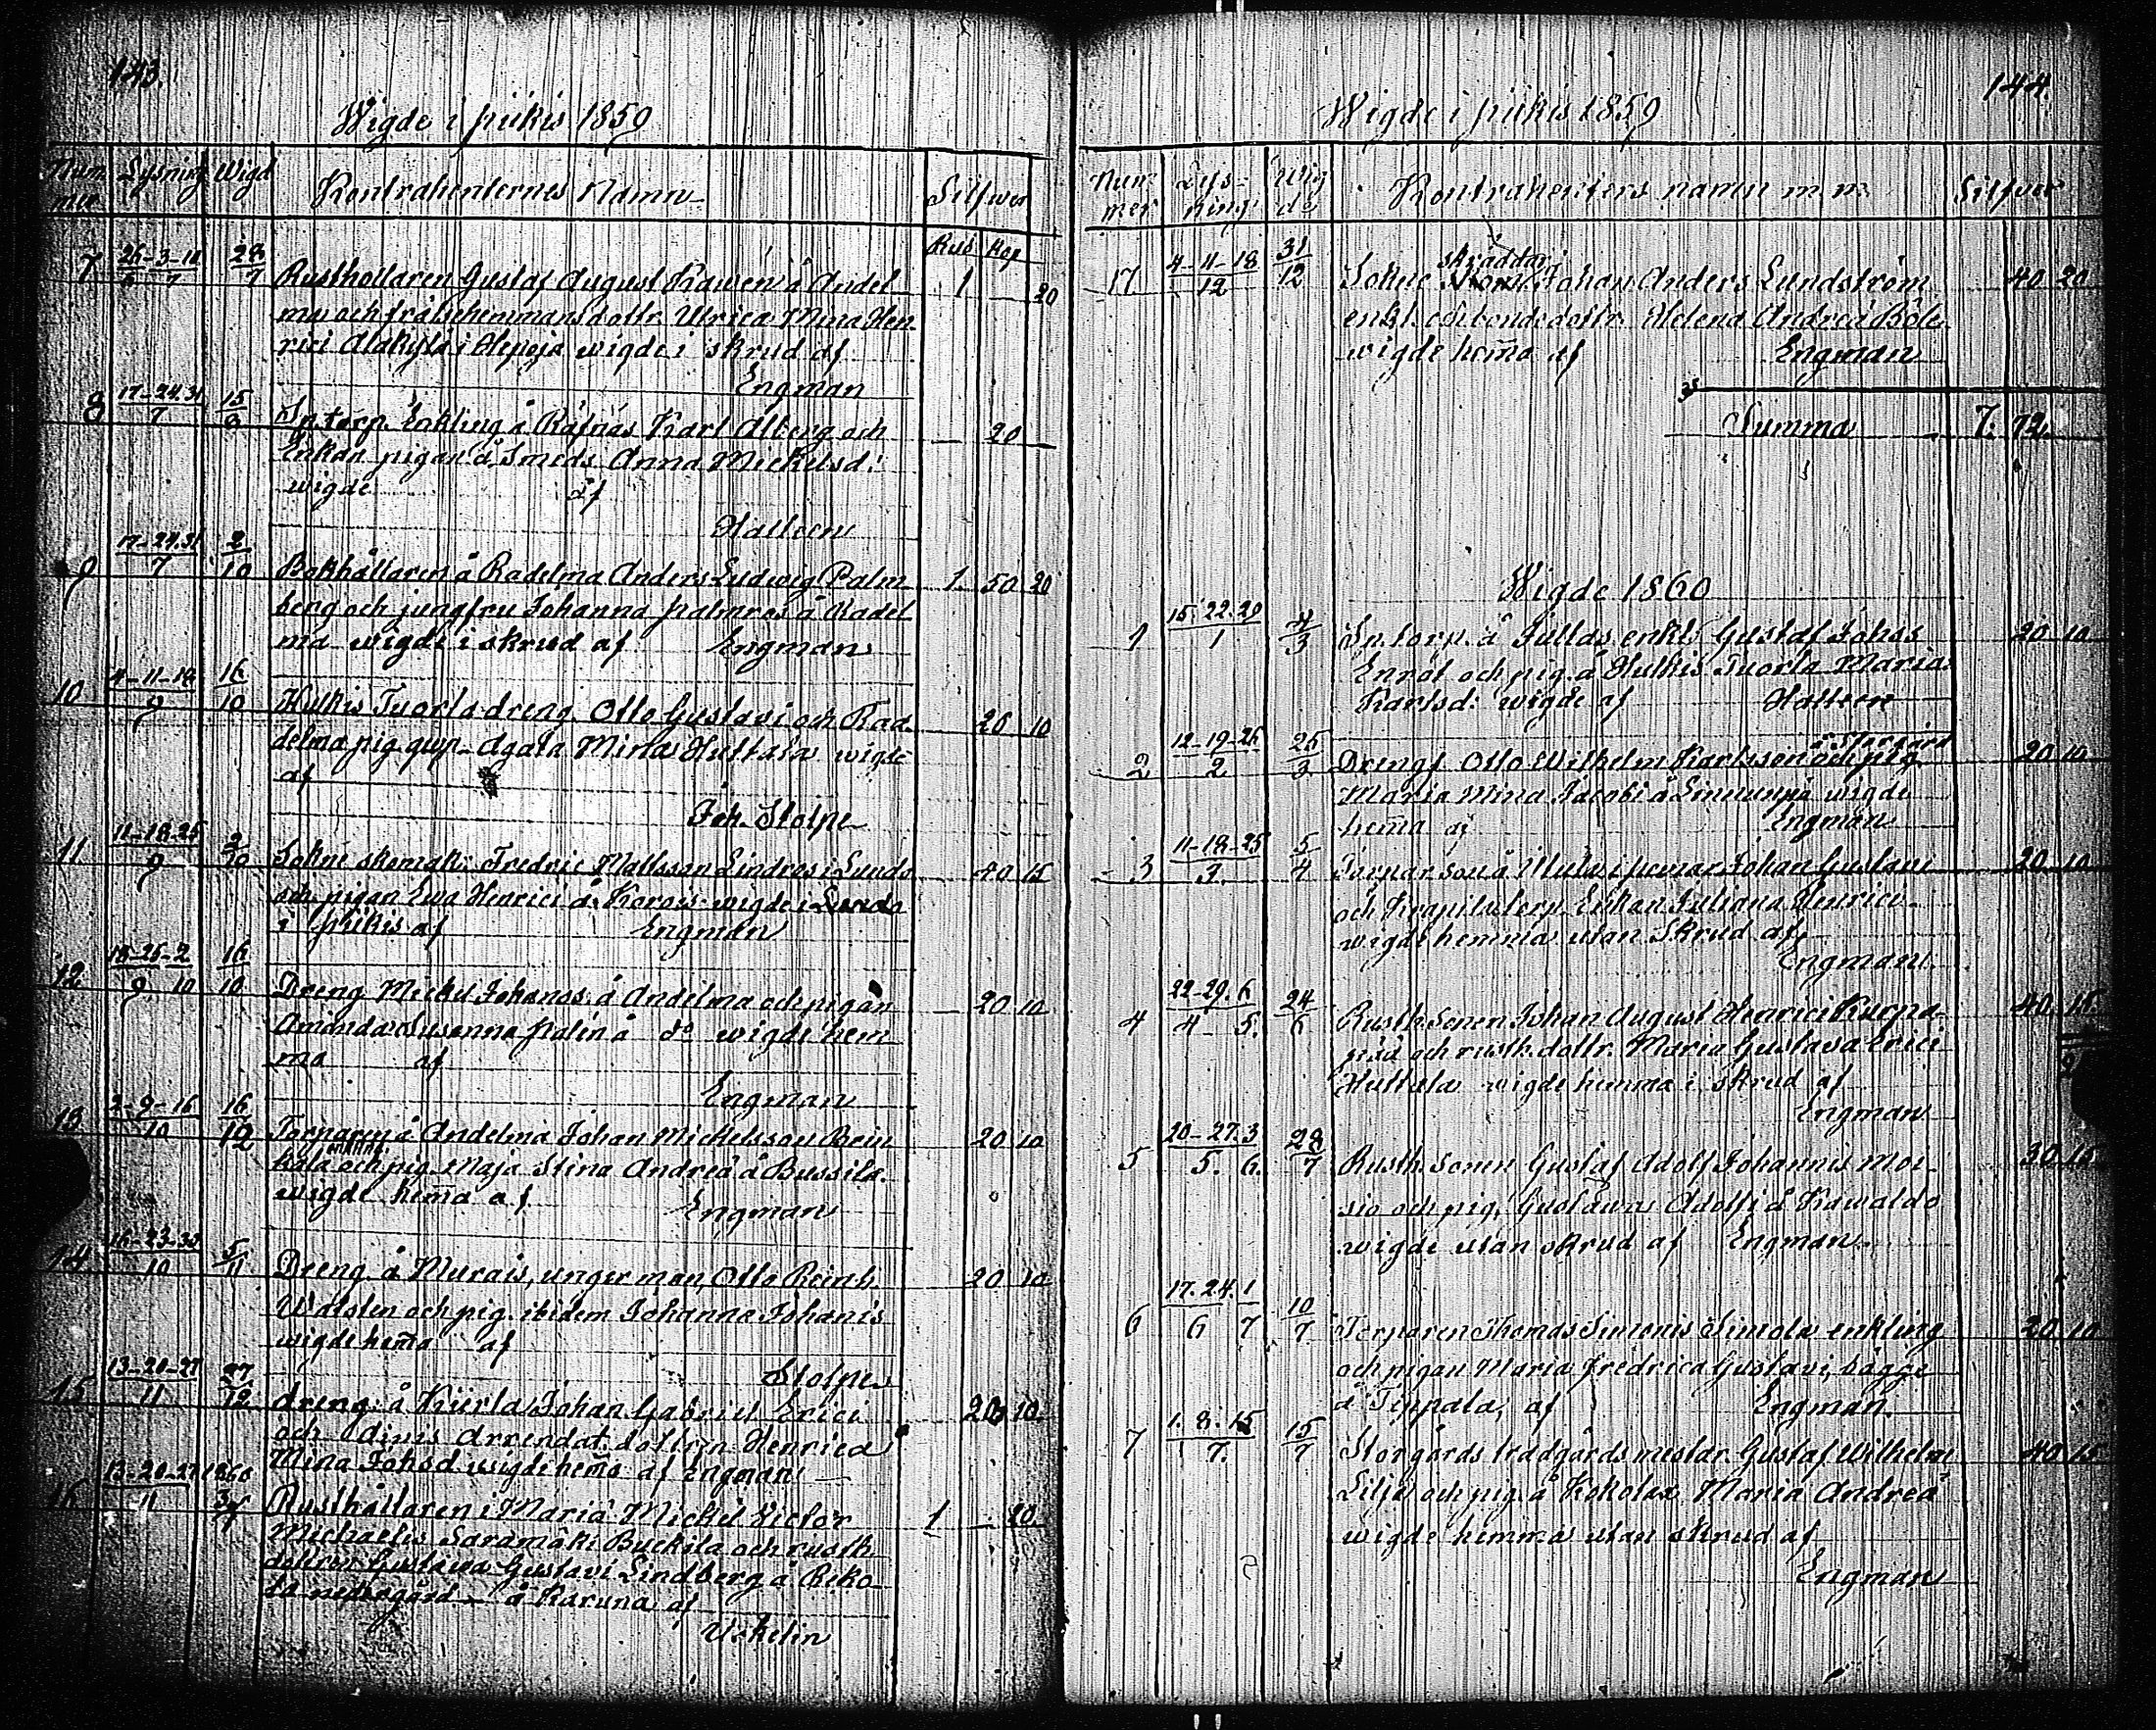 143.
Wigde i piikis 1859
Num
mer
Lysning
Wigd
Kontrahenternes Namn
Silfwer
Rus Kop
7 26-3-10 28
6 7 7
Rusthollaren Gustaf August Rawen å Andel 1 20
ma och frälsehemmansdottr Ulrica Mina Hen-
rici Alakylä i wigde i skrud af
Engman
8 17-24.31 15
7
Sp. torp. Enkling å Räfnäs Karl Alberg och 20
Enkan pigan å Smeds Anna Mickelsd:
wigde af
Halleen
9 17-24.31 2
7 10
Bokhållaren å Radelma Anders Ludwig Palm- 1 50 20
berg och jungfru Johanna palmros å Radel
ma wigde i skrud af Engman
10 4-11-18 16
9 10
Huttis Tuorla dreng Otto Gustavi och Raa- 20 10
delma pig. Agata Mina Huttala wigde
af
Joh. Stolpe
11 11-18.25 2
9 10
Sokne skomak: Fredric Mattsson Lindros i Lundo 40 15
och pigan Ewa Henrici å Korois wigde i Lundo
i piikis af Engman
12 18-25-2 16
9. 10 10
Dreng Mickel Johanss. å Andelma och pigan 20 10
Aminda Susanna Palin å do wigde hem
ma af
Engman
13 2-9-16 16
10 12
Torparen å Andelma Johan Mickelsson Rein 20 10
kala och pig. Maja Stina Andreä å Bussila
wigde hem̄a af Engman
14 16-23.30 5
10 11
Dreng å Murais, unger man, Otto Reinh. 20 10
Watolen och pig. ibidem Johanna Johanis
wigde hem̄a af
Stolpe
15 13-20-27 27
11 12
dreng å Kiërla Johan Gabriel Erici 20 10.
och dinis Arrendat. dottren Henrica
Mina Johsd wigde hem̄a af Engman
16 13-20-27 1860
11
Rusthållaren i Mariä Mickel Victor 1 — 20
Michaelis Saramäki Buckila och rusth.
dottren Gustava Gustavi Lindberg å Reko-
la nedregård å Karuna af
144.
Wigde i piikis 1859
Num
mer
Lys-
ning
Wig
de
Kontrahenters namn m. m.
Silfver
17 4-11-18 31
12 12
skräddar
Sokne Johan Anders Lundström 40 20
enkl. Helena Andreä Böle
wigde hem̄a af Engman
Summa 7. 72.
Wigde 1860
1 15. 22. 29 4
1 3
Sp. torp. å Jullas enkl. Gustaf Johss 20 10
Enrot och pig. å Huttis Tuorla Maria
Karlsd: wigde af Halleen
2 12-19-26 25
2 3
Storgård
Drengf Otto Wilhelm Karlsson och pig. 20 10
Maria Mina Jacobi å wigde
hem̄a af Engman
3 11-18-25 5
3. 4
Torpar son å i pemar Johan Gustavi 20 10
och Enkan Juliana Henrici
wigde hemma utan skrud af
Engman
4 22-29. 6 24
4 5. 6
Rusth. sonen Johan August Henrici Karpa- 40. 15.
och rusth. dottr. Maria Gustava Erici
Huttala wigde hemma i skrud af
Engman
5 20-27.3 28
5. 6. 7
Rusth. sonen Gustaf Adolf Johannis Moi- 30 15
sio och pig. Gustawa Adolfi å Kawaldo
wigde utan skrud af Engman
6 17. 24. 1 10
6 7 7
Torparen Thomas Simonis Simola enkling 20 10
och pigan Maria Fredrica Gustavi, bägge
å Teppala, af Engman
7 1. 8. 15 15
7. 7
Storgårds trädgårdsmestar. Gustaf Wilhelm 40 15
Lilja och pig. å Kokola Maria Andreä
wigde hemma utan skrud af
Engman